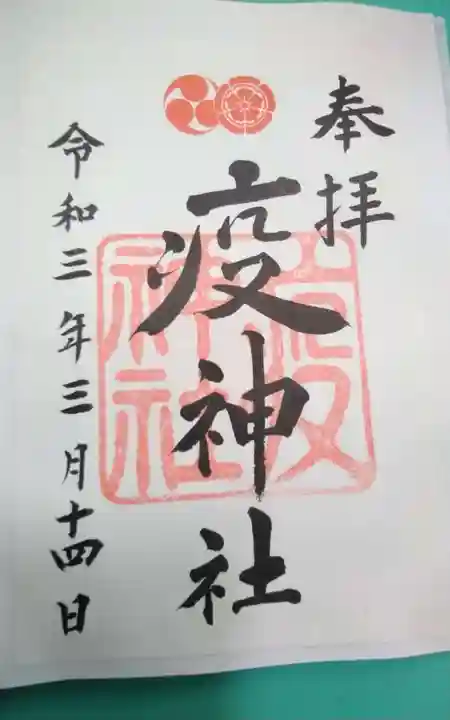 奉拝
疫神社
令和三年三月十四日
疫神社